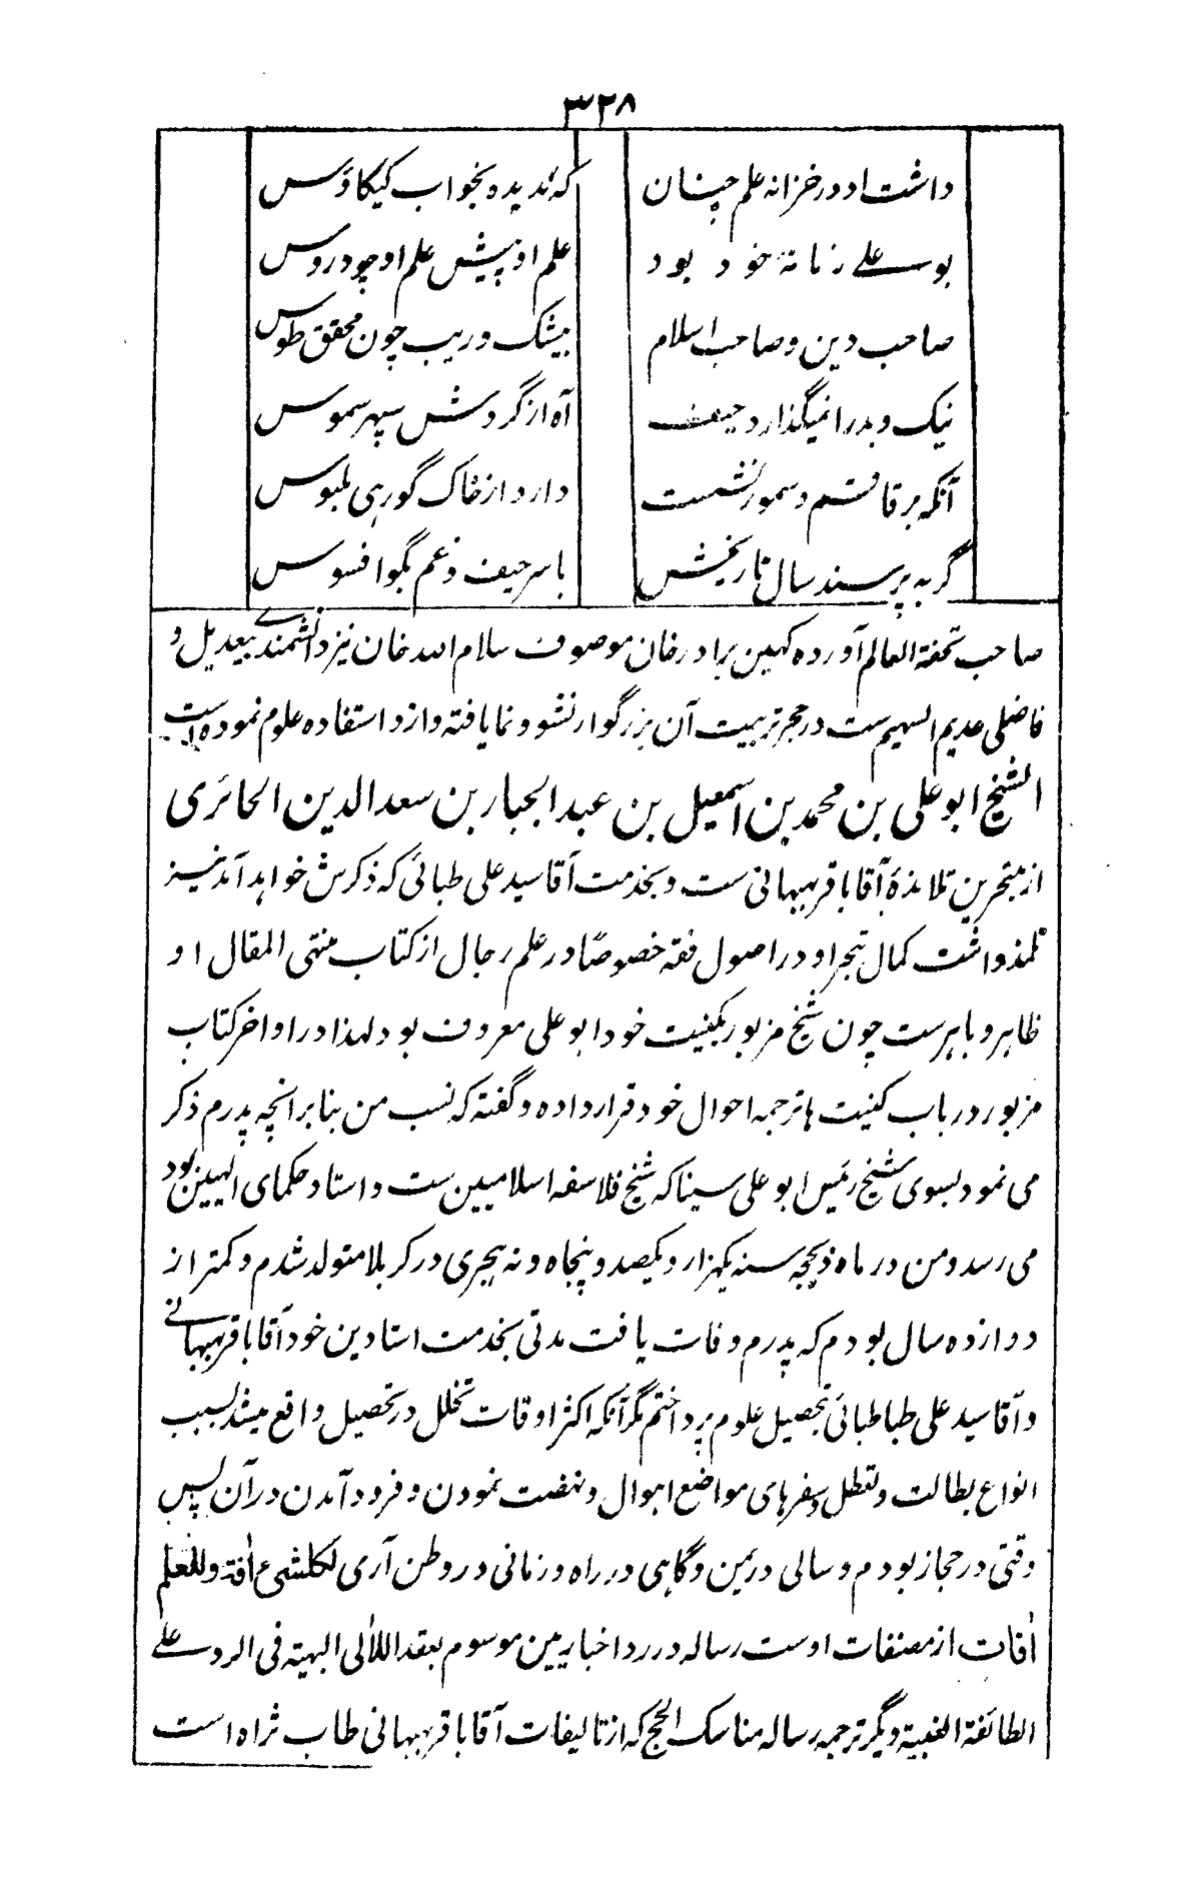 ۳۲۸
داشت او در خزانه علم چنان
که ندیده بخواب کیکاؤس
بو علی زمانۀ خود بود
علم او پیش علم او چو دروس
صاحب دین و صاحب اسلام
بیشک و ریب چون محقق طوس
نیک و بد را نمیگذارد حیف
آه از گردش سپهر سموس
آنکه بر قاقم و سمور نشست
دارد از خاک گور هی ملبوس
گر به پرسند سال تاریخش
با سر حیف و غم بگو افسوس
صاحب تحفة العالم آورده کهین برادر خان موصوف سلام الله خان نیز دانشمندے بیعدیل و
فاضلی عدیم السهیم ست در حجر تربیت آن بزرگوار نشو و نما یافته و ازو استفاده علوم نموده است
الشیخ ابو علی بن محمد بن اسمعیل بن عبد الجبار بن سعد الدین الحائری
از متبحرین تلامذۀ آقا باقر بهبهانی ست و بخدمت آقا سید علی طبائی که ذکرش خواهد آمد نیز
تلمذ داشت کمال تبحر او در اصول فقه خصوصًا در علم رجال از کتاب منتهی المقال او
ظاهر و باهرست چون شیخ مزبور بکنیت خود ابو علی معروف بود لهذا در اواخر کتاب
مزبور در باب کنیت ها ترجمه احوال خود قرار داده و گفته که نسب من بنا بر انچه پدرم ذکر
می نمود بسوی شیخ رئیس ابو علی سینا که شیخ فلاسفه اسلامیین ست و استاد حکمای الهیین بود
می رسد و من در ماه ذیحجه سنه یکهزار و یکصد و پنجاه و نه هجری در کربلا متولد شدم و کمتر از
دوازده سال بودم که پدرم وفات یافت مدتی بخدمت استادین خود آقا باقر بهبهانے
و آقا سید علی طباطبائی بتحصیل علوم پرداختم مگر آنکه اکثر اوقات تخلل در تحصیل واقع میشد بسبب
انواع بطالت و تعطل و سفرهای مواضع اهوال و نهضت نمودن و فرود آمدن در آن پس
وقتی در حجاز بودم و سالی در یمن و گاهی در راه و زمانی در وطن آری لکلشیء افة و للعلم
أفات از مصنفات اوست رساله در رد اخباریین موسوم بعقد اللآلی البهیة فی الرد علے
الطائفة الغبیة و دیگر ترجمه رساله مناسک الحج که از تالیفات آقا باقر بهبهانی طاب ثراه است